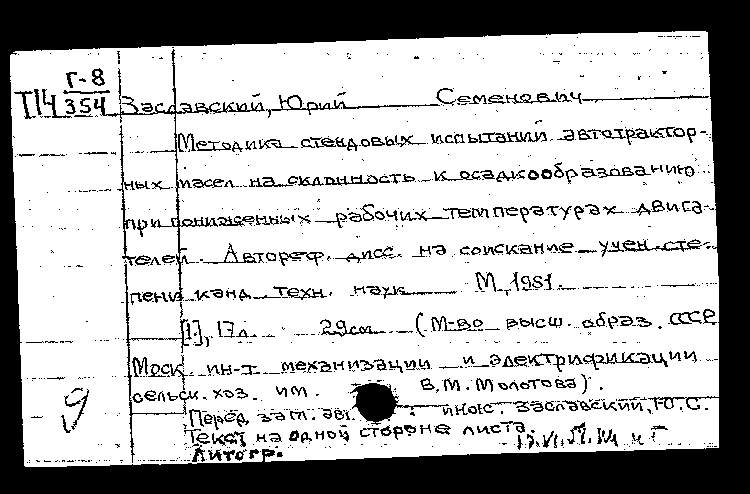 Г-8
Т14 354 Заславский, Юрий Семенович
Методика стендовых испытаний автотрактор-
ных масел на склонность к осадкообразованию
при пониженных рабочих температурах двига-
телей. Автореф. дисс. на соискание учен. сте-
пени канд. техн. наук М., 1951.
[1], 17 л. 29 см (М-во высш. образ. СССР
Моск. ин-т механизации и электрификации
сельск. хоз. им. В. М. Молотова).
Перед загл. авт.: инж. Заславский, Ю. С.
Текст на одной стороне листа.
Литогр.
9